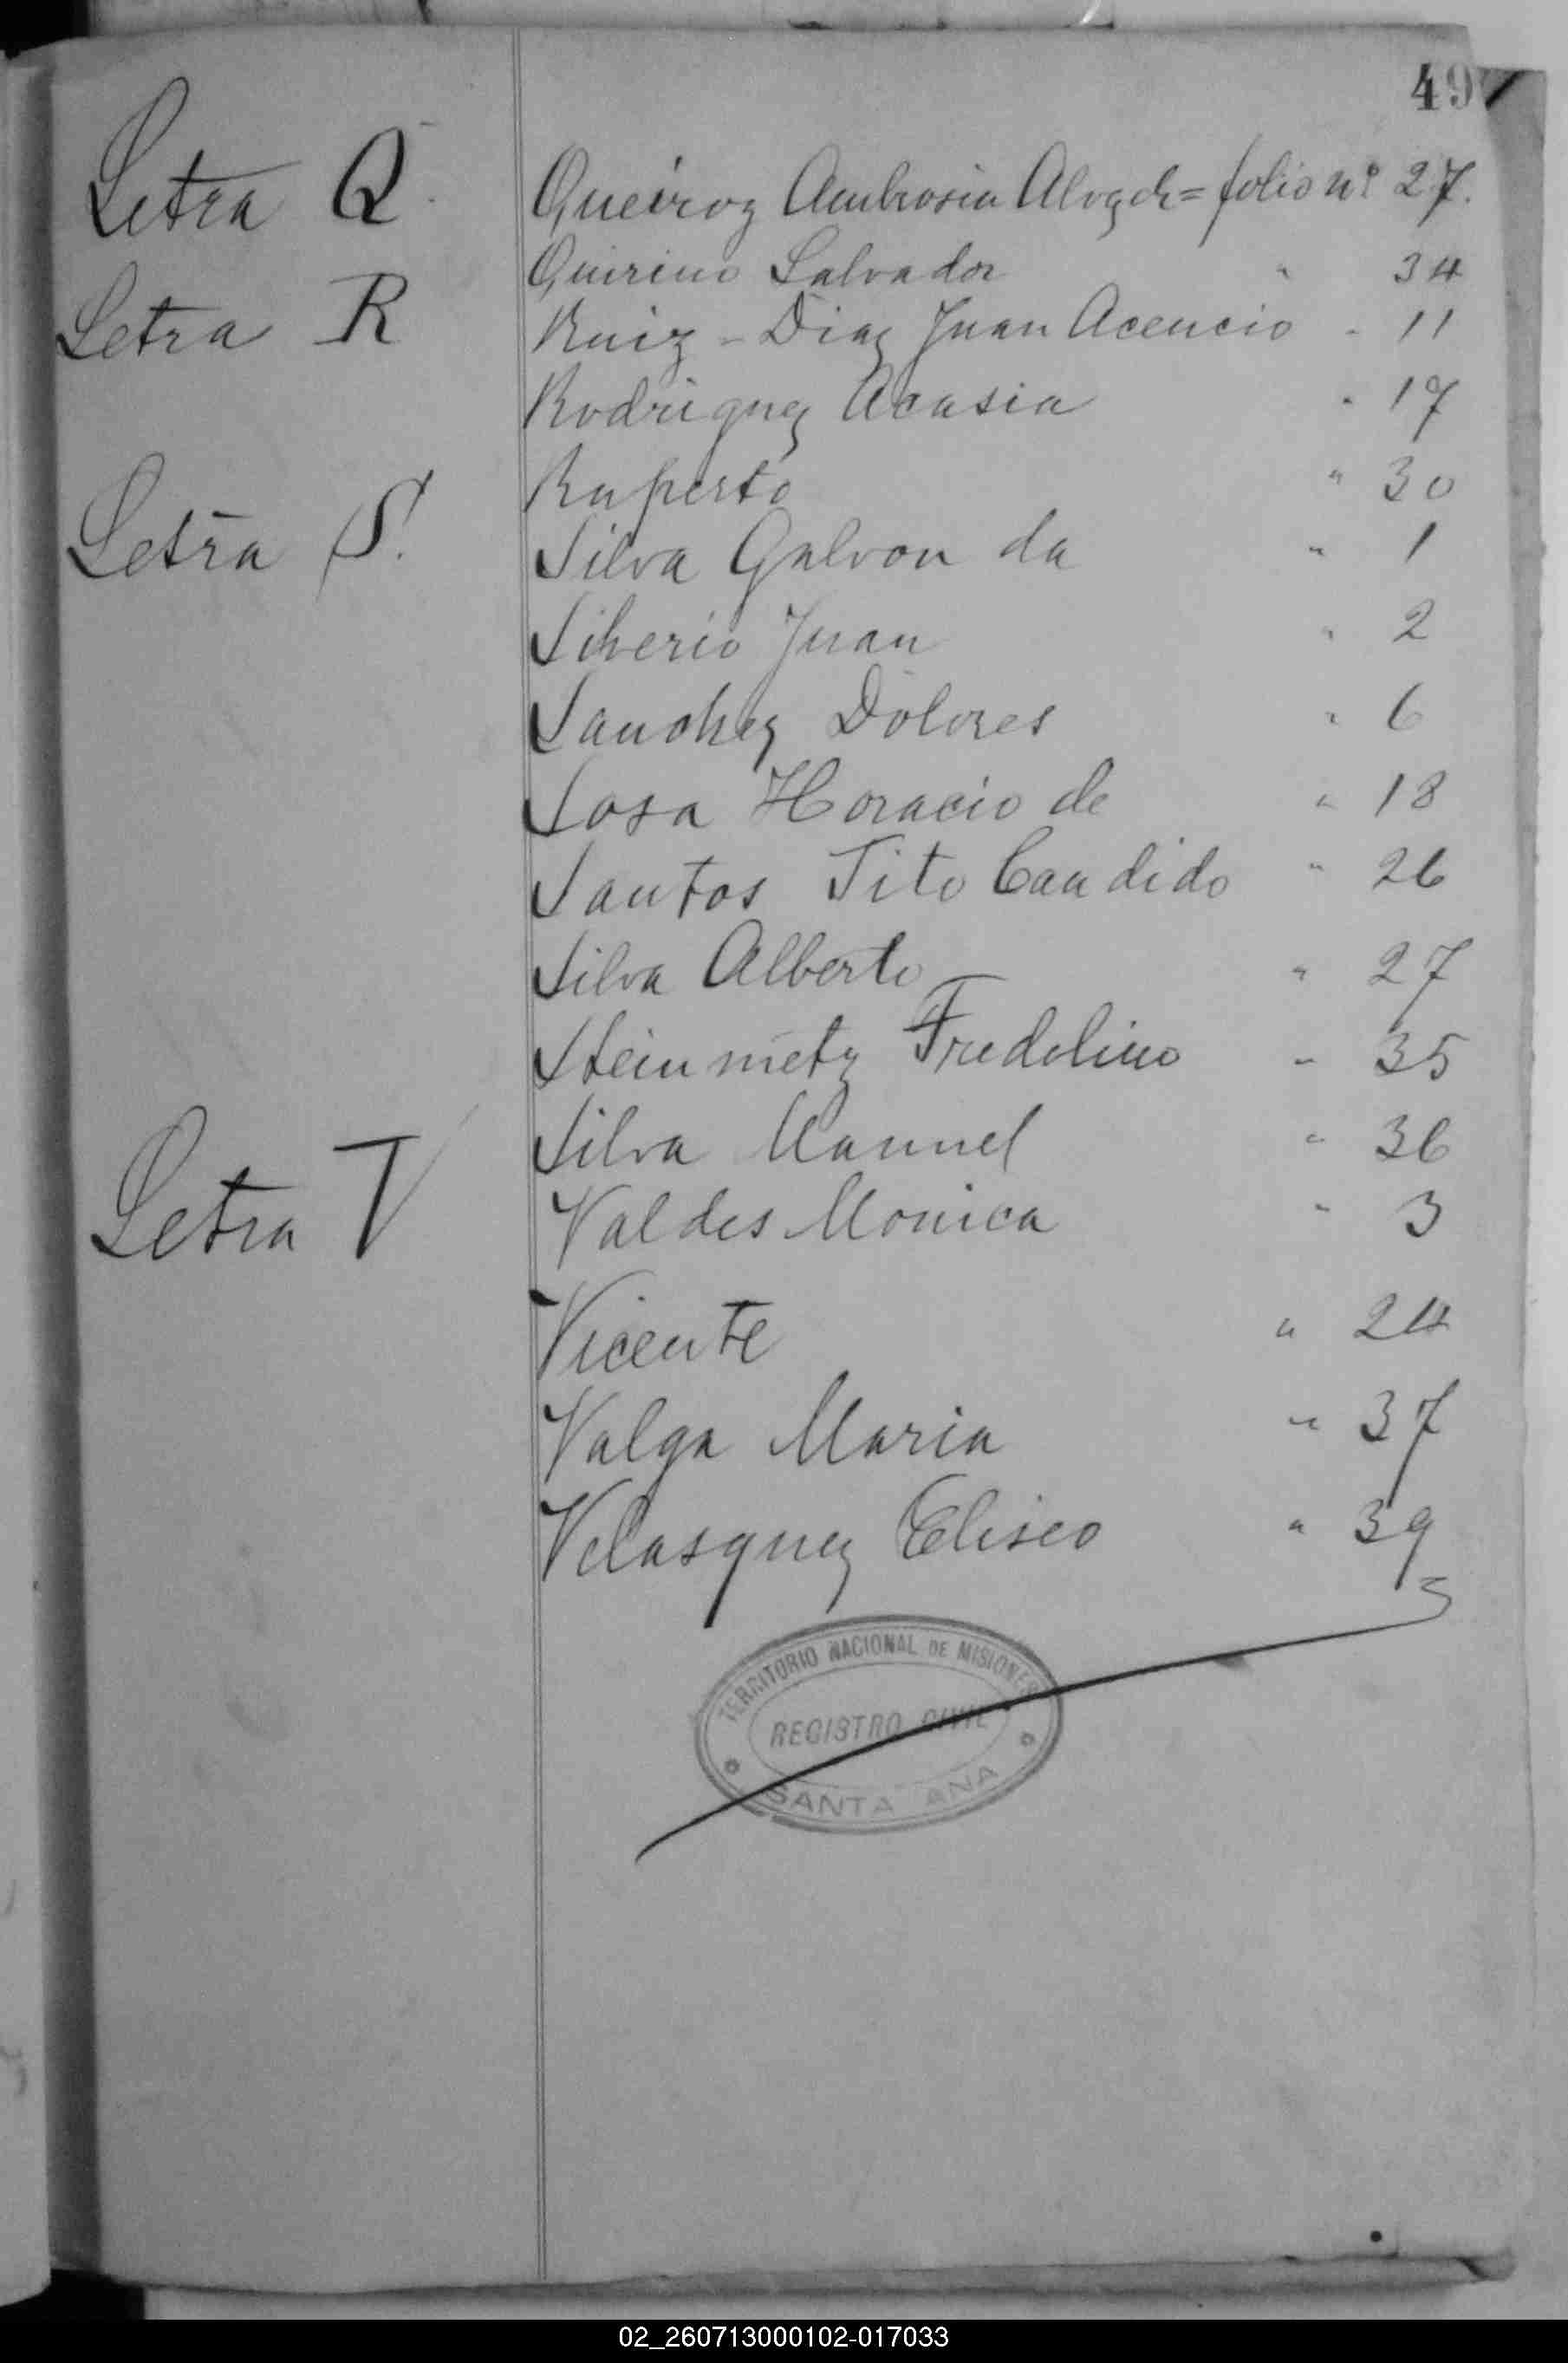 49
Letra Q. Queiroz Ambrosia Alvez de = folio nº 27.
Quirino Salvador " 34
Letra R Ruiz - Diaz Juan Acencio " 11
Rodriguez Acasia " 17
Ruperto " 30
Letra S. Silva Galvon da " 1
Silverio Juan " 2
Sanchez Dolores " 6
Sosa Horacio de " 18
Santos Tito Candido " 26
Silva Alberto " 27
Steinmetz Fredolino " 35
Silva Manuel " 36
Letra V Valdes Monica " 3
Vicente " 24
Valga Maria " 37
Velasquez Eliseo " 39
TERRITORIO NACIONAL DE MISIONES
REGISTRO CIVIL
SANTA ANA
02_260713000102-017033